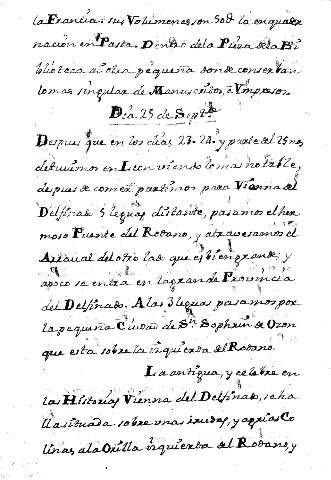 la Francia: sus Volumenes son 50 d. la enquader
nacion en Pasta. Dentro de la Pieza de la Bi
blioteca ai otra pequeña donde conservan
lo mas singular de Manuscritos, è Impresos.
Dia 25 de Septre
Despues que en los dias 23. 24. y parte del 25 nos
detuvimos en Leon viendo lo mas notable,
despues de comer partimos para Vienna del
Delfinado 5 leguas distante, pasamos el her
moso Puente del Rodano, y atravesamos el
Arraval del otro lado que es bien grande; y
apoco se entra en la grande Provincia
del Delfinado. A las 3 leguas pasamos por
la pequeña Ciudad de Sn. Sophrin de Ozon
que esta sobre la izquierda del Rodano.
La antigua, y celebre en
las Historias Vienna del Delfinado, se ha
lla situada sobre unas rudas, y agrias Co
linas, a la Orilla izquierda del Rodano, y